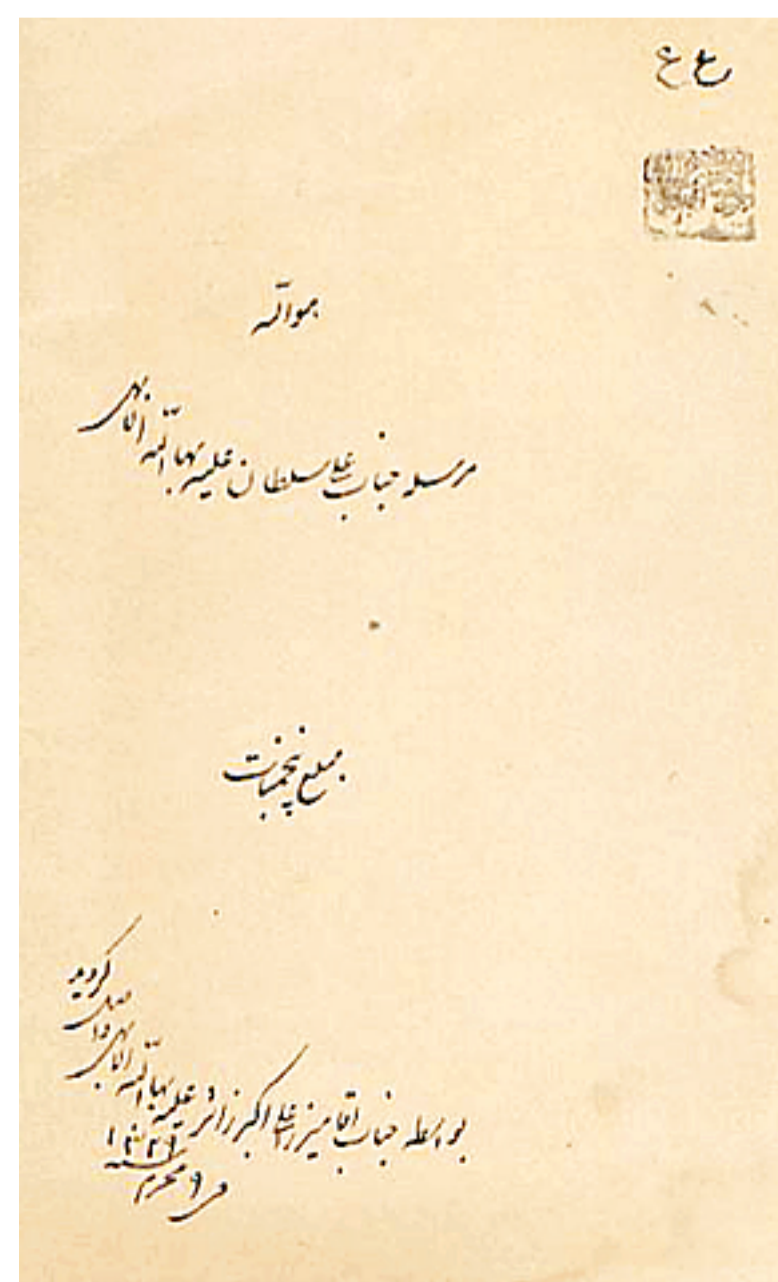 ع ع
هوالله
مرسله جناب علی سلطان علیه بهاءالله الابهی
مبلغ پنجمنات
بواسطه جناب آقا میرزا علی اکبر زائر علیه بهاءالله الابهی واصل گردید
فی ۹ محرم سنه ۱۳۲۹